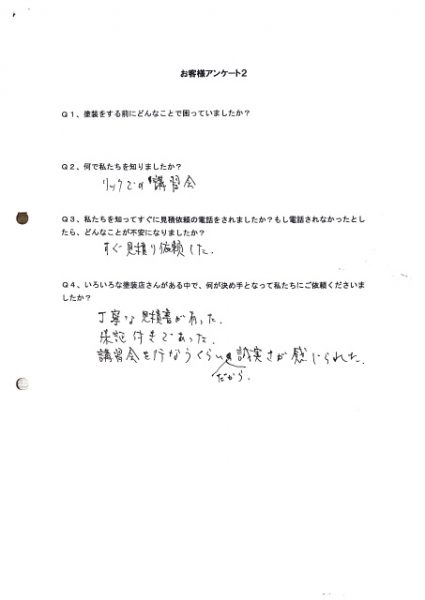 お客様アンケート２
Ｑ１、塗装をする前にどんなことで困っていましたか？
Ｑ２、何で私たちを知りましたか？
リックでの講習会
Ｑ３、私たちを知ってすぐに見積依頼の電話をされましたか？もし電話されなかったとし
たら、どんなことが不安になりましたか？
すぐ見積り依頼した.
Ｑ４、いろいろな塗装店さんがある中で、何が決め手となって私たちにご依頼くださいま
したか？
丁寧な見積書があった.
保証付きであった.
講習会を行なうくらいだから.誠実さが感じられた.